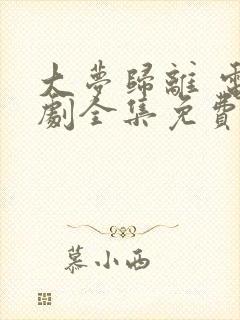 大夢歸離 電
劇全集免費
慕小西